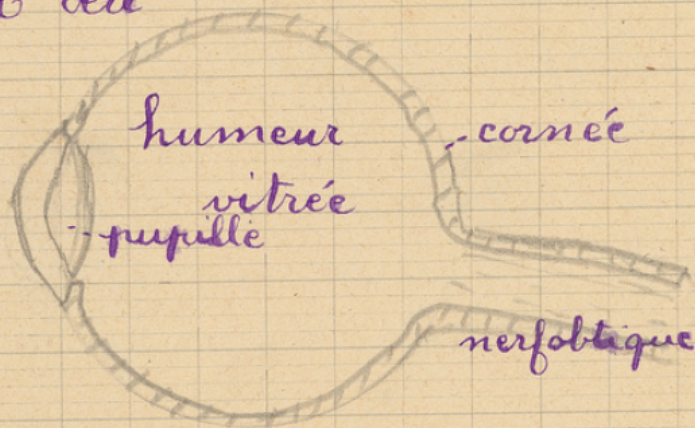 humeur
vitrée
cornée
pupille
nerfobtique